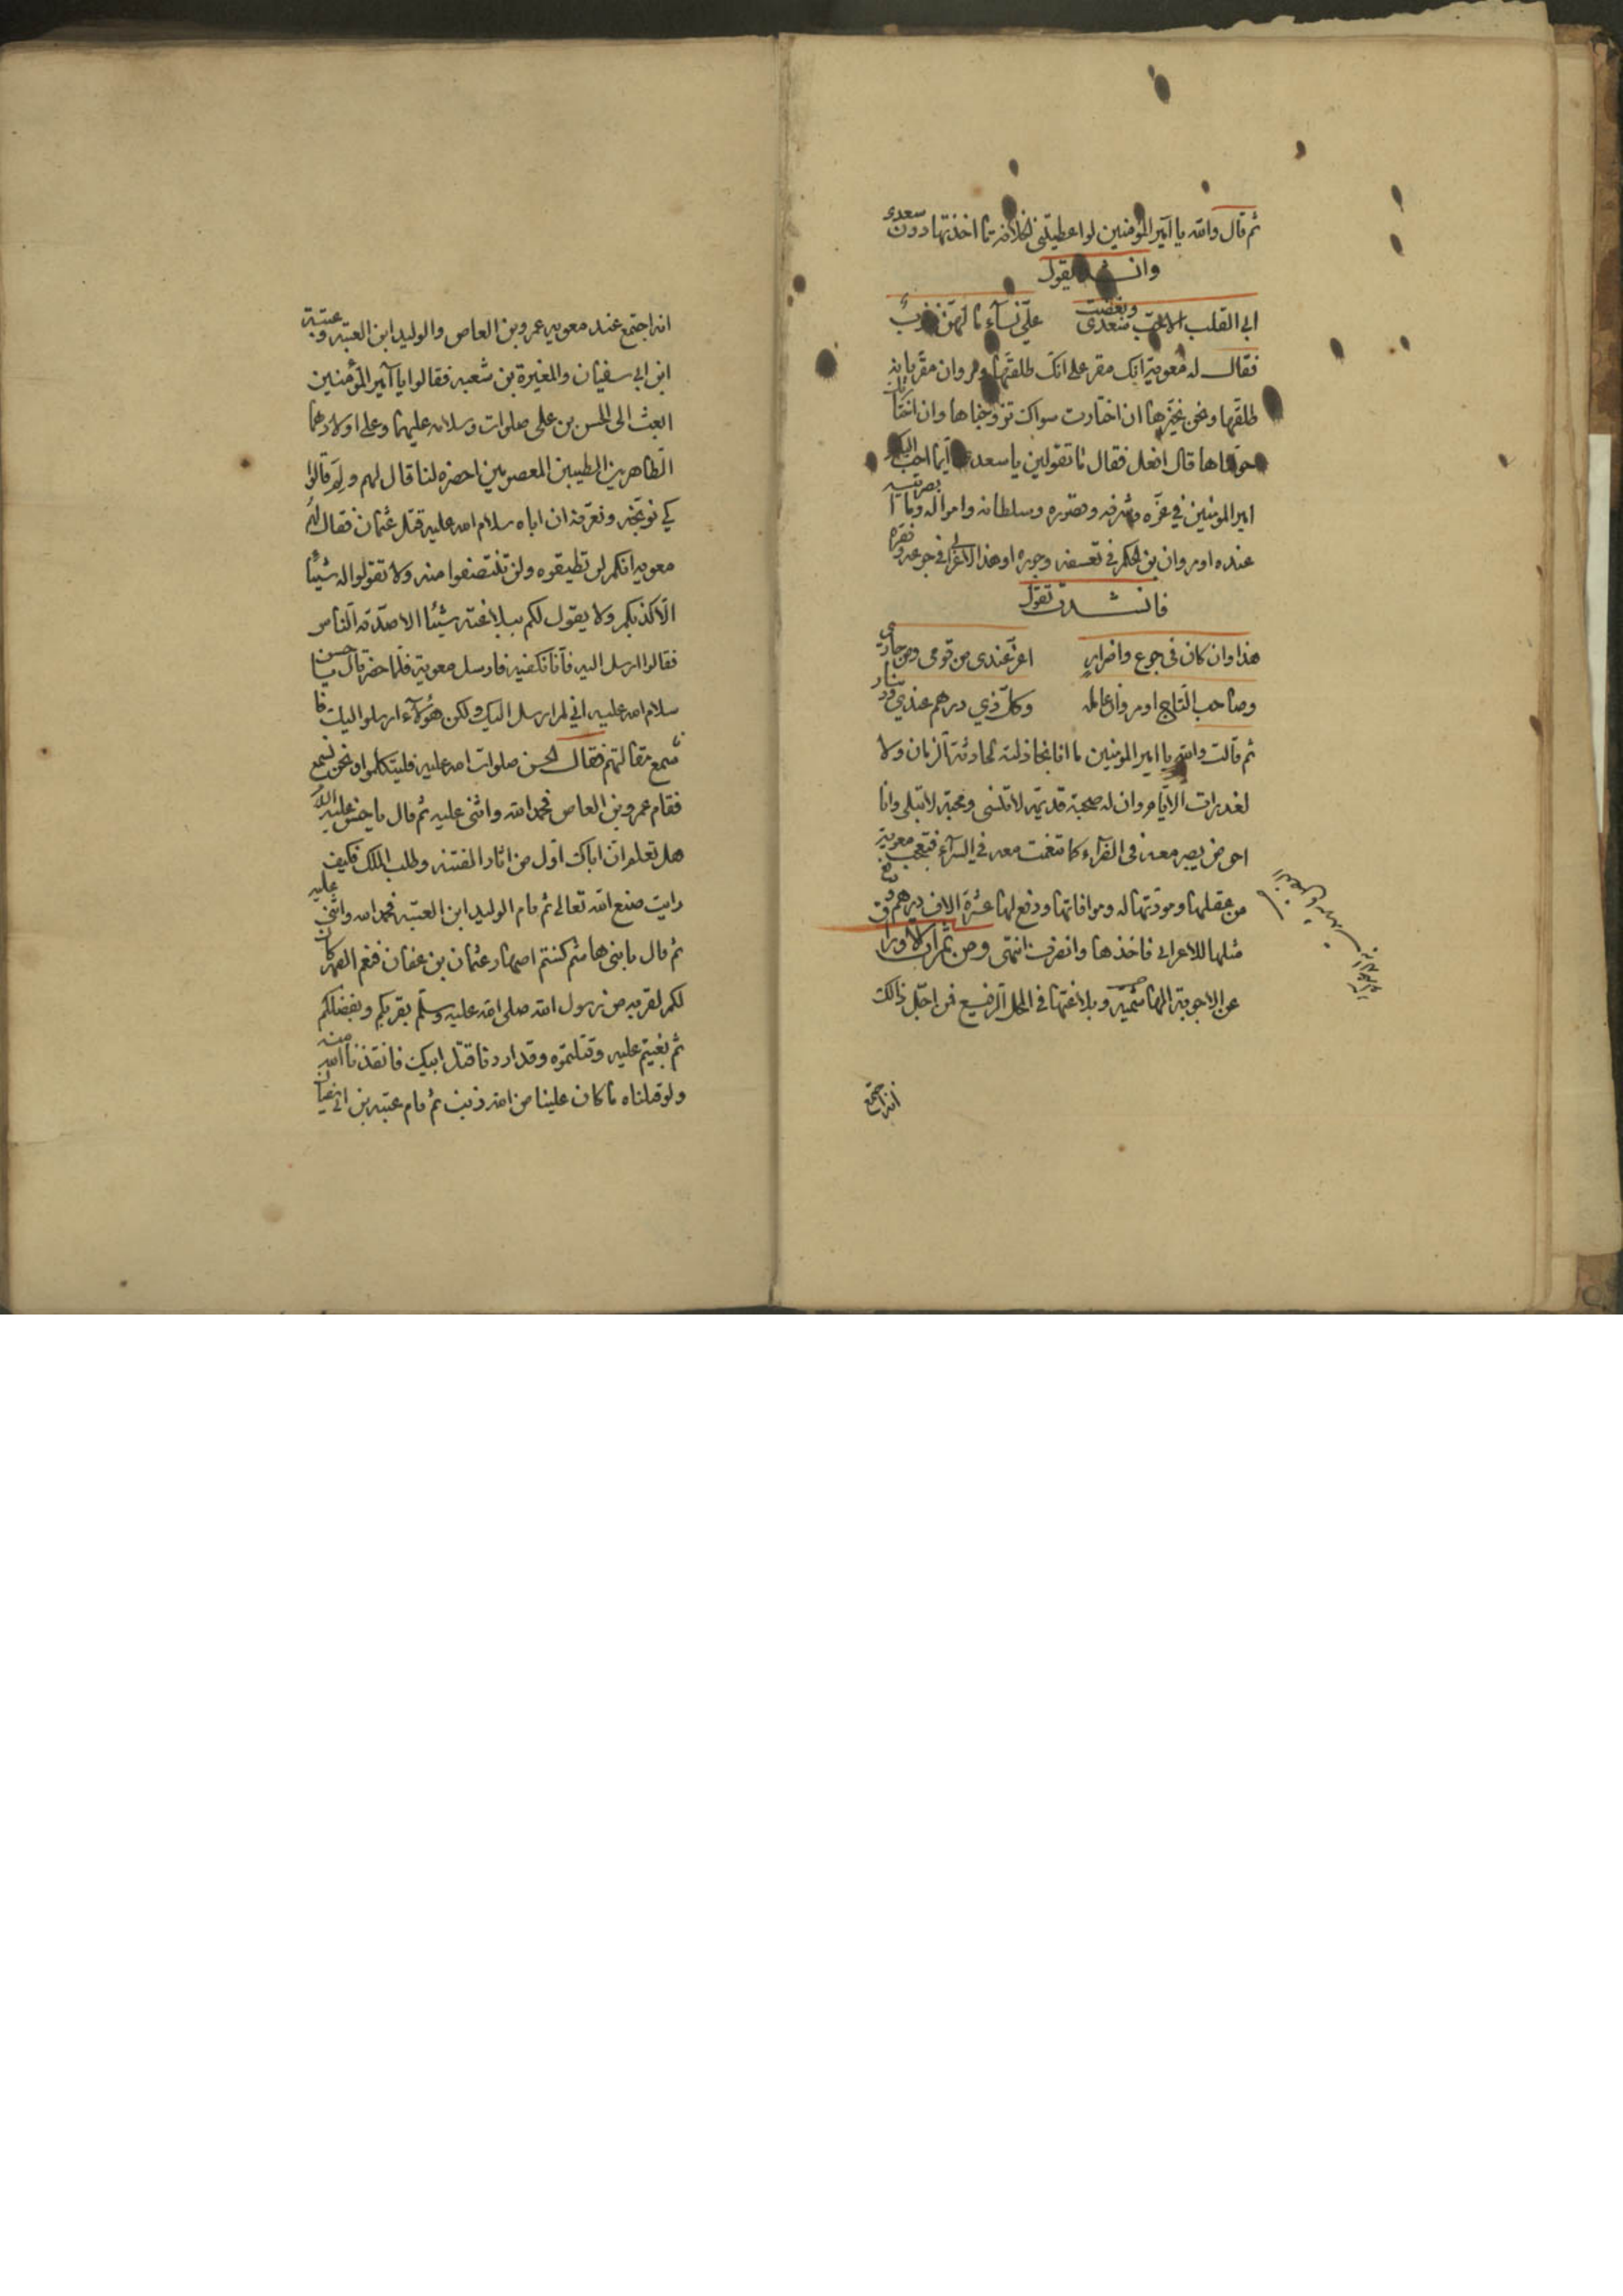 ثم قال والله يا امير المؤمنين لو اعطيتني الخلافة ما اخذتها دون سعدى
وانشد يقول
ابى القلب الا حب سعدى وبغضت على نساء ما لهن ذنوب
فقال له معوية انك مقر على انك طلقتها ومروان مقر بانه
طلقها ونحن نخيرها ان اختارت سواك تزوجناها وان اختارتك
حولناها قال افعل فقال ما تقولين يا سعدى ايما احب اليك
امير المومنين في عزه وشرفه وقصوره وسلطانه وامواله وما ابصرتيه
عنده او مروان بن الحكم في تعسفه وجوره او هذا الاعرابي في جوعه وفقره
فانشدت تقول
هذا وان كان في جوع واضرار اعز عندي من قومي ومن جاري
وصاحب التاج او مروان عامله وكل ذي درهم عندي ودينار
ثم قالت والله يا امير المومنين ما انا بخاذلته لحادثة الزمان ولا
لغدرات الايام وان له صحبة قديمة لا تنسى ومحبة لا تبلى وانا
احق من يصبر معه في الضراء كما تنعمت معه في السراء فتعجب معوية
من عقلها ومودتها له وموافاتها ودفع لها عشرة الاف درهم ودفع
مثلها للاعرابي فاخذها وانصرف انتهى ومن ثمرات الاوراق
عن الاجوبة الهاشمية وبلاغتها في المحل الرفيع فمن اجل ذالك
انه اجتمع
انه اجتمع عند معويه عمرو بن العاص والوليد ابن العتبه وعتبة
ابن ابي سفيان والمغيرة بن شعبه فقالوا يا امير المؤمنين
ابعث الى الحسن بن علي صلوات وسلامه عليهما وعلى اولادهما
الطاهرين الطيبين المعصومين احضره لنا قال لهم ولم قالوا
كي نوبخه ونعرفه ان اباه سلام الله عليه قتل عثمان فقال لهم
معويه انكم لن تطيقوه ولن تنتصفوا منه ولا تقولوا له شيئا
الا كذبكم ولا يقول لكم ببلاغته شيئا الا صدقه الناس
فقالوا ارسل اليه فانا نكفيه فارسل معوية فلما حضر قال يا حسن
سلام الله عليه اني لم ارسل اليك ولكن هؤلاء ارسلوا اليك فا
سمع مقالتهم فقال الحسن صلوات الله عليه فليتكلموا ونحن نسمع
فقام عمرو بن العاص فحمد الله واثنى عليه ثم قال يا حسن عليه السلام
هل تعلم ان اباك اول من اثار الفتنه وطلب الملك فكيف
رايت صنع الله تعالى ثم قام الوليد ابن العتبه فحمد الله واثنى عليه
ثم قال يا بني هاشم كنتم اصهار عثمان بن عفان فنعم الصهر كان
لكم لقربه من رسول الله صلى الله عليه وسلم يقربكم ويفضلكم
ثم بغيتم عليه وقتلتموه وقد اردنا قتل ابيك فانقذنا الله منه
ولو قتلناه ما كان علينا من الله ذنب ثم قام عتبه بن ابي سفيان